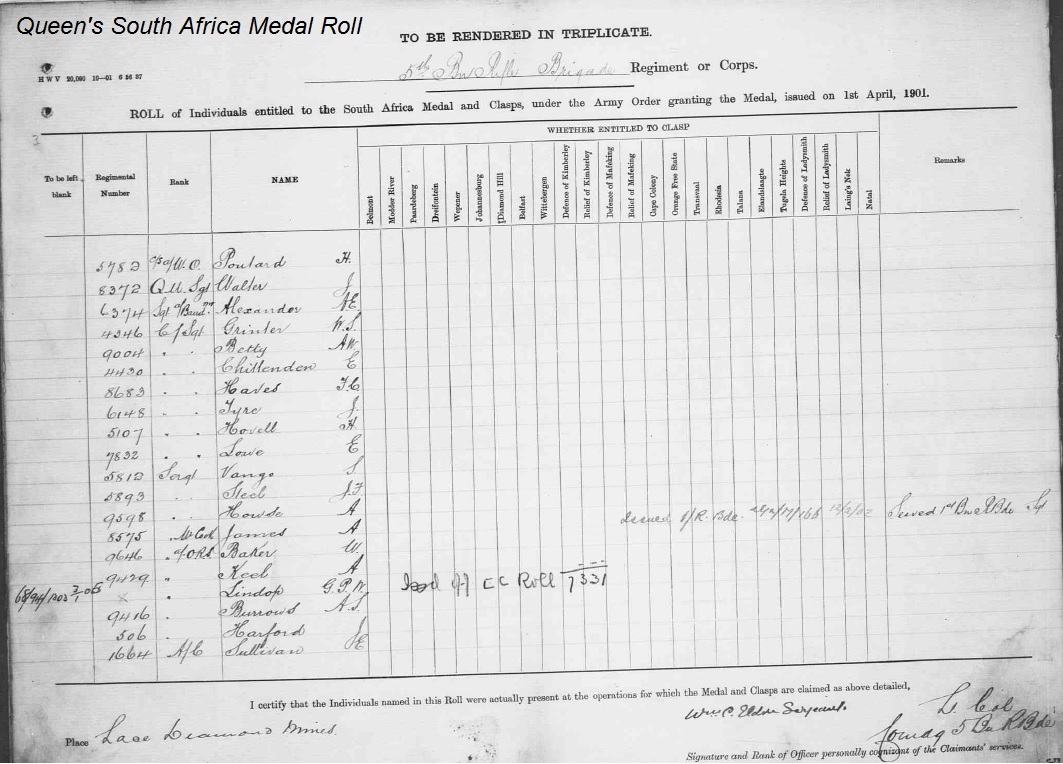 Queen's South Africa Medal Roll
TO BE RENDERED IN TRIPLICATE.
H W V 20,000 10—01 6 56 37
5th Bn Rifle Brigade Regiment or Corps.
ROLL of Individuals entitled to the South Africa Medal and Clasps, under the Army Order granting the Medal, issued on 1st April, 1901.
To be left blank
Regimental Number
Rank
NAME
WHETHER ENTITLED TO CLASP
Belmont
Modder River
Paardeberg
Dreifontein
Wepener
Johannesburg
Diamond Hill
Belfast
Wittebergen
Defence of Kimberley
Relief of Kimberley
Defence of Mafeking
Relief of Mafeking
Cape Colony
Orange Free State
Transvaal
Rhodesia
Talana
Elandslaagte
Tugela Heights
Defence of Ladysmith
Relief of Ladysmith
Laing's Nek
Natal
Remarks
5782 W.O. Poulard H.
8372 Q.M. Sgt Walter J.
6374 Sgt Alexander A E
4346 C/Sgt Grinter W.S.
9004 " " Betty A W
4430 " " Chittenden E
8683 " " Hayes
6148 " " Tyre J.
5107 " " Hovell H.
7832 " " Lowe E
5812 Sergt Vango S
5893 " " Steel J.F
9598 " " Howse A Issued 1/R. Bde. Served 1st Bn R Bde Sgt
8575 " Cook James A
9646 " O.R.S Baker W.
9429 " Keel A
X " Lindop G.P.W. Issd off EC Roll 7331
9416 " Burrows A.S.
506 " Harford J
1664 A/C Sullivan J E
I certify that the Individuals named in this Roll were actually present at the operations for which the Medal and Clasps are claimed as above detailed,
Place Lace Diamond Mines.
Wm C. Eldon Serjeant. Lt Col
Comdg 5 Bn R Bde
Signature and Rank of Officer personally cognizant of the Claimants' services.